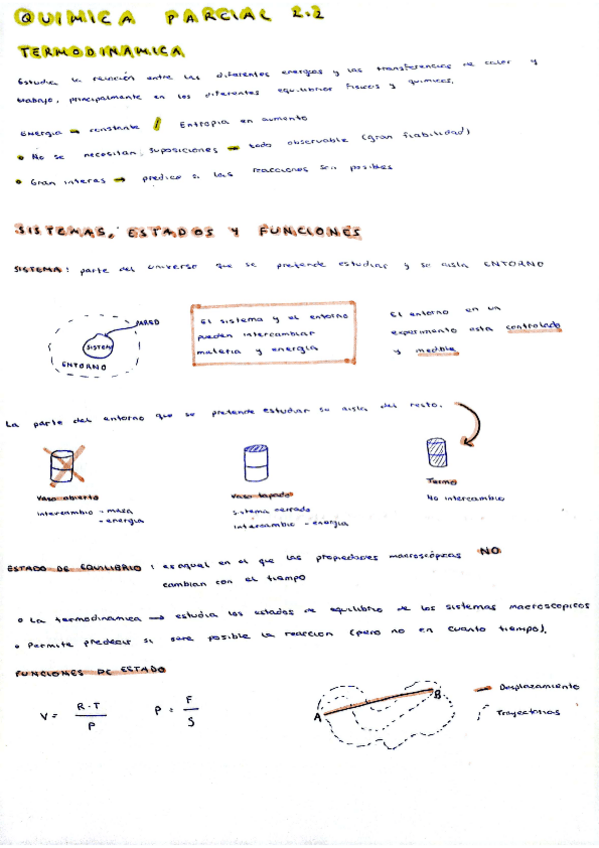 QUIMICA PARCIAL 2.2
TERMODINAMICA
Estudia la relación entre las diferentes energias y las transferencias de calor y
trabajo, principalmente en los diferentes equilibrios fisicos y quimicos.
Energia → constante / Entropia en aumento
• No se necesitan suposiciones → todo observable (gran fiabilidad)
• Gran interes → predice si las reacciones son posibles
SISTEMAS, ESTADOS Y FUNCIONES
SISTEMA: parte del universo que se pretende estudiar y se aisla ENTORNO
PARED
SISTEMA
ENTORNO
El sistema y el entorno
pueden intercambiar
materia y energia
El entorno en un
experimento esta controlado
y medible
La parte del entorno que se pretende estudiar se aisla del resto.
Vaso abierto
intercambio - masa
- energia
Vaso tapado
sistema cerrado
intercambio - energia
Termo
No intercambio
ESTADO DE EQUILIBRIO: es aquel en el que las propiedades macroscópicas NO
cambian con el tiempo
• La termodinamica → estudia los estados de equilibrio de los sistemas macroscopicos
• Permite predecir si sera posible la reaccion (pero no en cuanto tiempo).
FUNCIONES DE ESTADO
V = R·T / P
P = F / S
A
B
Desplazamiento
Trayectorias